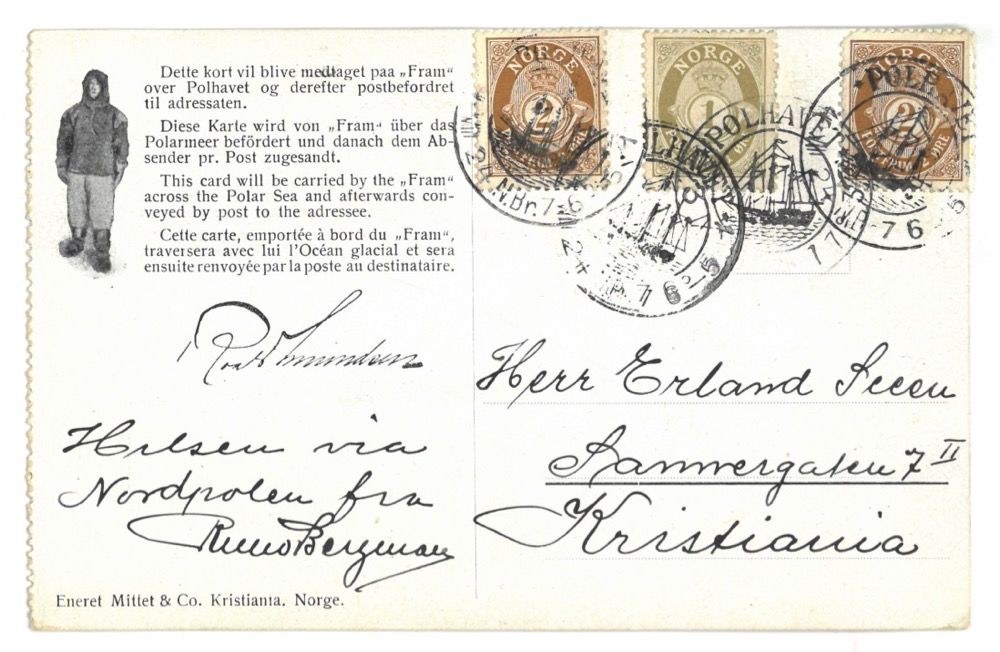 Dette kort vil blive medtaget paa „Fram“
over Polhavet og derefter postbefordret
til adressaten.
Diese Karte wird von „Fram“ über das
Polarmeer befördert und danach dem Ab-
sender pr. Post zugesandt.
This card will be carried by the „Fram“
across the Polar Sea and afterwards con-
veyed by post to the adressee.
Cette carte, emportée à bord du „Fram“,
traversera avec lui l'Océan glacial et sera
ensuite renvoyée par la poste au destinataire.
NORGE
2
NORGE
1
NORGE
2
POLHAVET
N.Br. 7-6
24
76
POLE
76
Roald Amundsen
Hilsen via
Nordpolen fra
Bergman
Herr Erland
7 II
Kristiania
Eneret Mittet & Co. Kristiania. Norge.